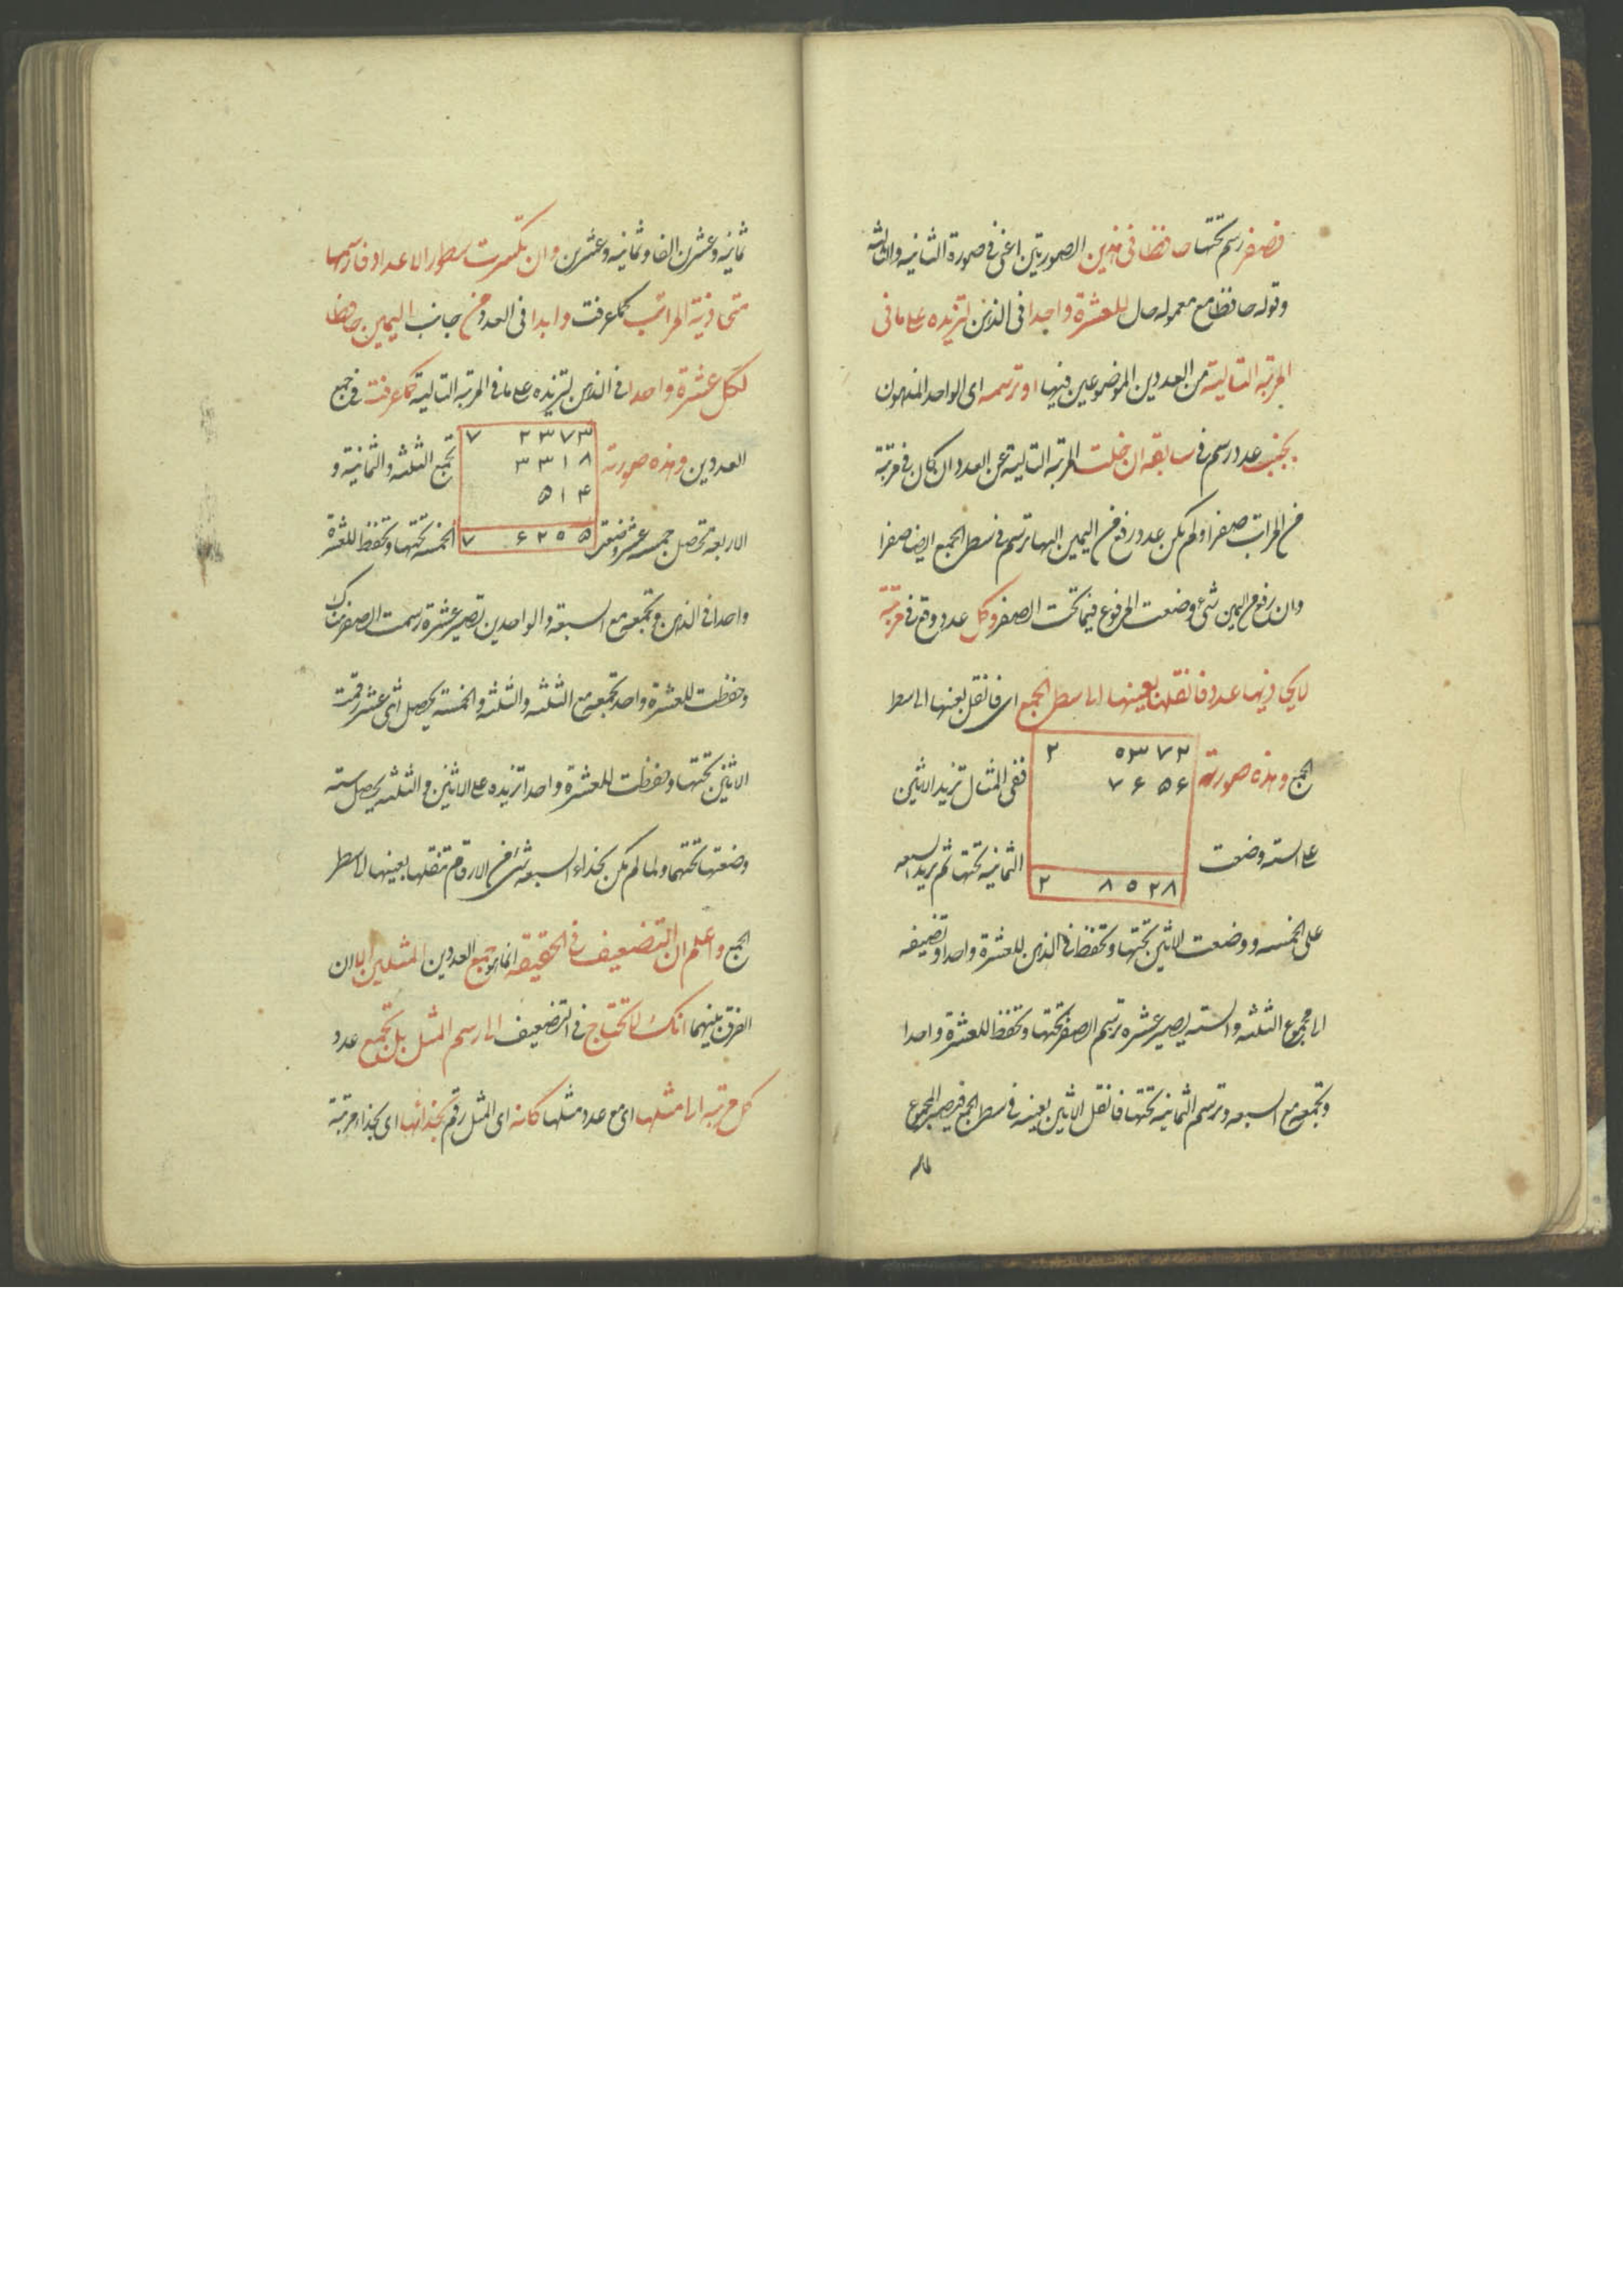 فصفر رسم تحتها حافظا فى هذين الصورتين اعنى فى صورة الثانيه والثالثه
وقوله حافظا مع معموله حال للعشرة واحدا فى الذهن لتزيده على ما فى
المرتبه التاليته من العددين الموضوعين فيها او ترسمه اى الواحد المذهون
بجنب عدد رسم فى سابقه ان خلت المرتبه التالية عن العدد ان كان فى مرتبة
من المراتب صفر او لم يكن عدد رفع من اليمين اليها ترسم فى سطر الجمع ايضا صفرا
وان رفع من اليمين شئ وضعت المرفوع فيما تحت الصفر وكل عدد وقع فى مرتبة
لا يحاذيها عدد فانقلها بعينها الى سطر الجمع اى فانقل بعينها الى سطر
الجمع وهذه صورته
٢ ٥٣٧٢
٧ ۶ ۵ ۶
٢ ٨ ٥ ٢٨
ففى المثال تزيد الاثنين
على السته وضعت الثمانيه تحتها ثم يزيد السبعه
على الخمسه ووضعت الاثنين تحتها وتحفظ فى الذهن للعشرة واحدا وتضيفه
الى مجموع الثلثه والسته يصير عشره ترسم الصفر تحتها وتحفظ للعشرة واحدا
وتجمعه مع السبعه وترسم الثمانيه تحتها فانقل الاثنين بعينه فى سطر الجمع فيصير المجموع
ثمانيه وعشرين الفا وثمانيه وعشرين وان تكثرت سطور الاعداد فارسمها
متحاذية المراتب كما عرفت وابدا فى العدد من جانب اليمين حافظا
لكل عشرة واحدا فى الذهن لتزيده على ما فى المرتبه التالية كما عرفت فى جمع
العددين وهذه صورته
٧ ٢٣٧٣
٣٣١٨
۵١۴
٧ ۶٢٥۵
تجمع الثلثه والثمانية و
الاربعه تحصل خمسه عشر وضعت الخمسه تحتها وتحفظ للعشرة
واحدا فى الذهن وتجمعه مع السبعه والواحدين تصير عشرة رسمت الصفر هناك
وحفظت للعشرة واحد تجمعه مع الثلثه والثلثه والخمسه يحصل اثنى عشر رقمت
الاثنين تحتها وحفظت للعشرة واحدا تزيده على الاثنين والثلثه يحصل سته
وضعتها تحتهما ولما لم يكن بحذاء السبعه شئ من الارقام تنقلها بعينها الى سطر
الجمع واعلم ان التضعيف فى الحقيقه انما هو جمع العددين المثلين الا ان
الفرق بينهما انك لا تحتاج فى التضعيف الى رسم المثل بل تجمع عدد
كل مرتبه الى مثلها اى مع عدد مثلها كانه اى المثل رقم بحذائها اى بحذاء مرتبة